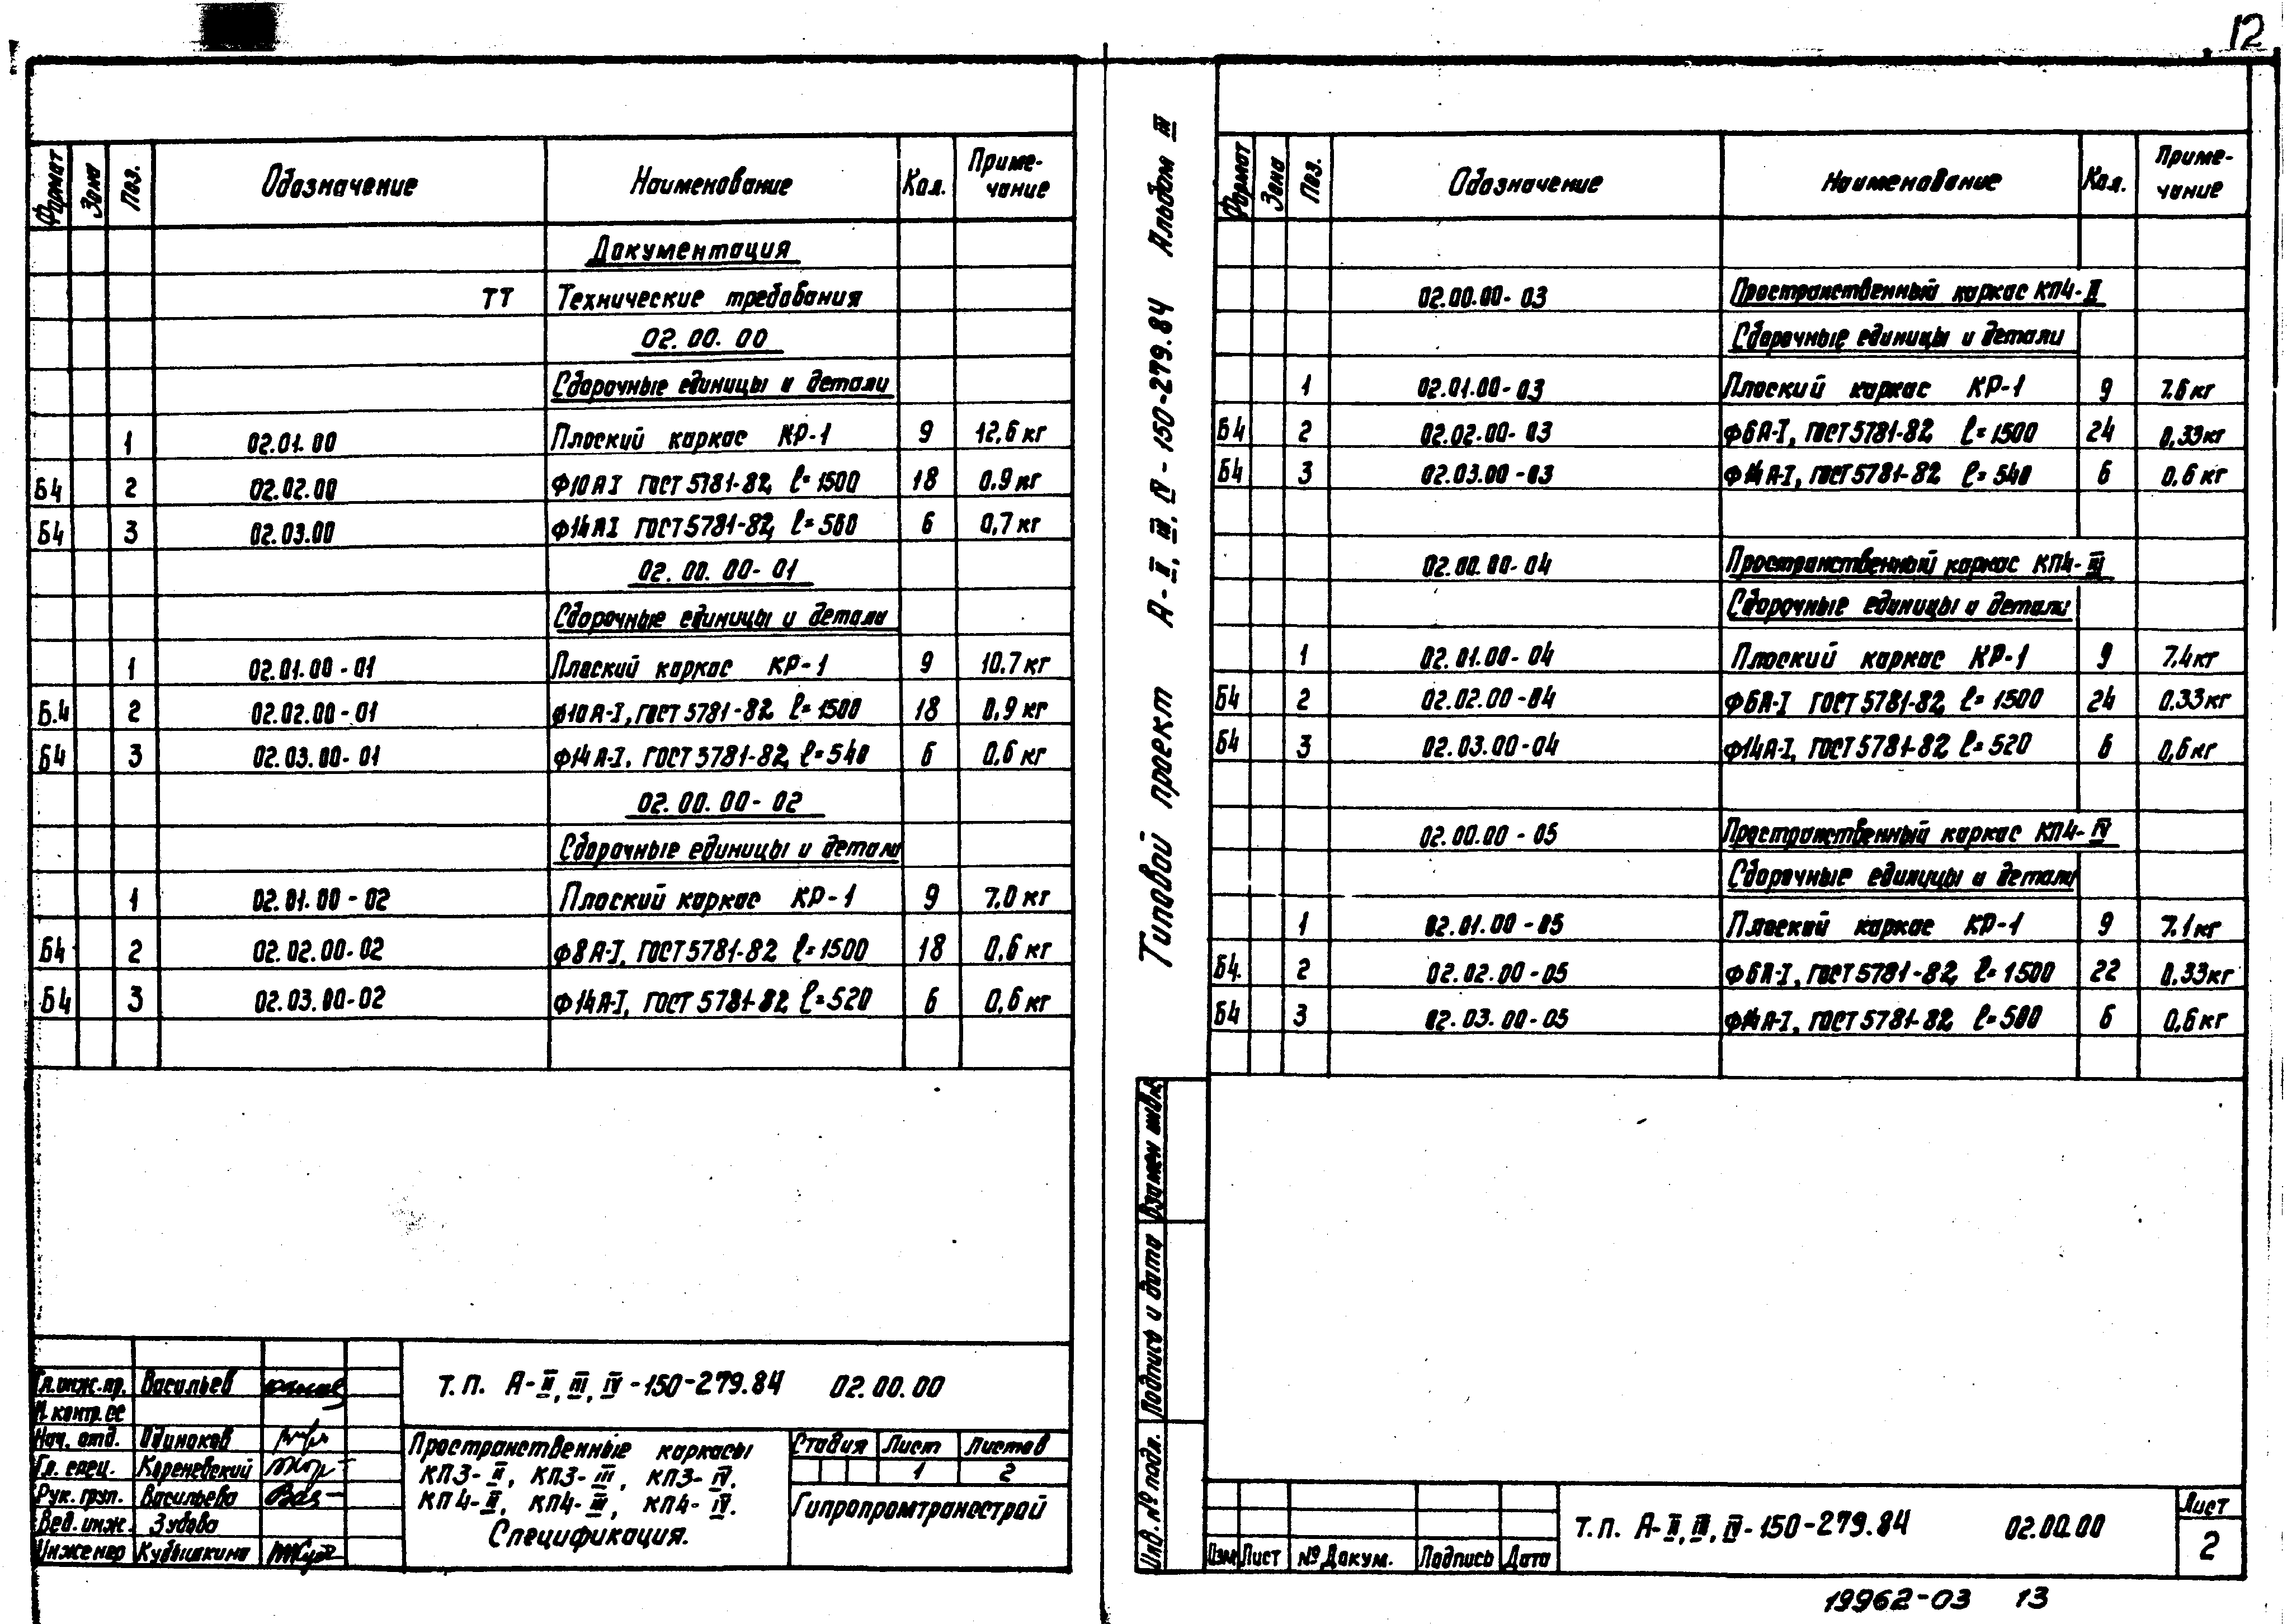 12
Формат Зона Поз. Обозначение Наименование Кол. Приме-
чание
Документация
ТТ Технические требования
02.00.00
Сборочные единицы и детали
1 02.01.00 Плоский каркас КР-1 9 12,6 кг
Б4 2 02.02.00 Ф10 А I ГОСТ 5781-82, ℓ=1500 18 0.9 кг
Б4 3 02.03.00 Ф14 А I ГОСТ 5781-82, ℓ=560 6 0,7 кг
02.00.00-01
Сборочные единицы и детали
1 02.01.00-01 Плоский каркас КР-1 9 10.7 кг
Б.4 2 02.02.00-01 Ф10 А-I, ГОСТ 5781-82 ℓ=1500 18 0,9 кг
Б4 3 02.03.00-01 Ф14 А-I, ГОСТ 5781-82, ℓ=540 6 0,6 кг
02.00.00-02
Сборочные единицы и детали
1 02.01.00-02 Плоский каркас КР-1 9 7.0 кг
Б4 2 02.02.00-02 Ф8 А-I, ГОСТ 5781-82 ℓ=1500 18 0,6 кг
Б4 3 02.03.00-02 Ф14 А-I, ГОСТ 5781-82 ℓ=520 6 0,6 кг
Гл.инж.пр. Васильев
Н.контр.
Нач. отд. Одиноков
Гл. спец. Кореневский
Рук. груп. Васильева
Вед. инж. Зубова
Инженер Кубышкина
Т.П. А-II, III, IV-150-279.84 02.00.00
Пространственные каркасы
КП3-II, КП3-III, КП3-IV,
КП4-II, КП4-III, КП4-IV.
Спецификация.
Стадия Лист Листов
1 2
Гипропромтрансстрой
Типовой проект А-II, III, IV-150-279.84 Альбом III
Взамен инв.№
Подпись и дата
Инв. № подл.
Формат Зона Поз. Обозначение Наименование Кол. Приме-
чание
02.00.00-03 Пространственный каркас КП4-II
Сборочные единицы и детали
1 02.01.00-03 Плоский каркас КР-1 9 7.6 кг
Б4 2 02.02.00-03 Ф6 А-I, ГОСТ 5781-82, ℓ=1500 24 0,33 кг
Б4 3 02.03.00-03 Ф14 А-I, ГОСТ 5781-82 ℓ=540 6 0,6 кг
02.00.00-04 Пространственный каркас КП4-III
Сборочные единицы и детали
1 02.01.00-04 Плоский каркас КР-1 9 7,4 кг
Б4 2 02.02.00-04 Ф6 А-I ГОСТ 5781-82, ℓ=1500 24 0.33 кг
Б4 3 02.03.00-04 Ф14 А-I, ГОСТ 5781-82 ℓ=520 6 0,6 кг
02.00.00-05 Пространственный каркас КП4-IV
Сборочные единицы и детали
1 02.01.00-05 Плоский каркас КР-1 9 7.1 кг
Б4. 2 02.02.00-05 Ф6 А-I, ГОСТ 5781-82, ℓ=1500 22 0,33 кг
Б4 3 02.03.00-05 Ф14 А-I, ГОСТ 5781-82, ℓ=500 6 0,6 кг
Изм Лист № Докум. Подпись Дата
Т.П. А-II, III, IV-150-279.84 02.00.00
Лист
2
19962-03 13